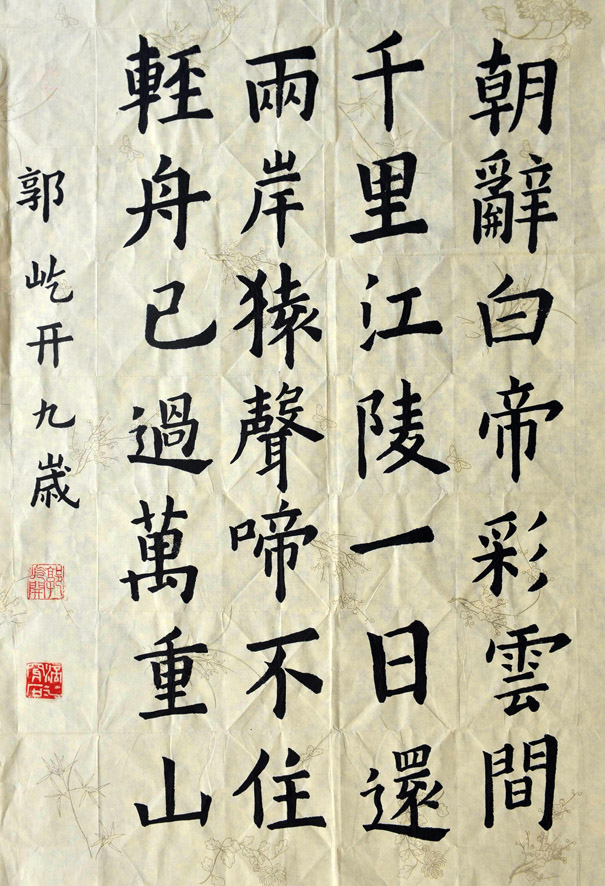 朝辭白帝彩雲間
千里江陵一日還
兩岸猿聲啼不住
輕舟已過萬重山
郭屹开九歲